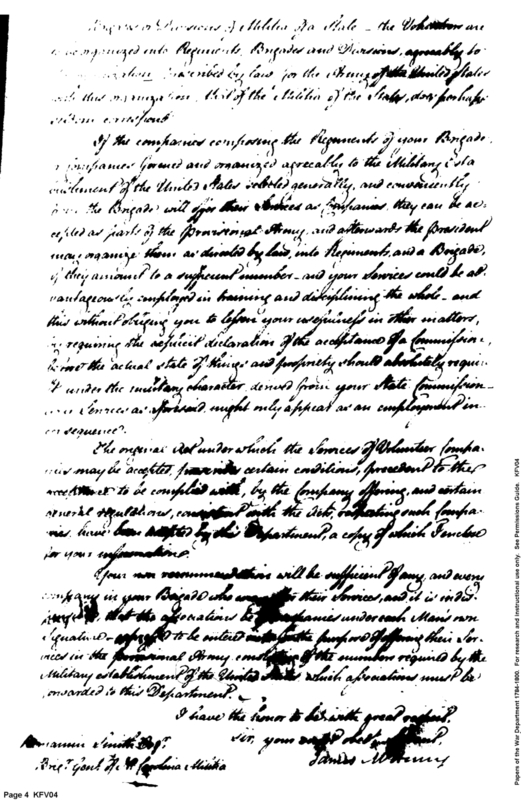 Divisions of Militia of a State – the Volunteers are
organized into Regiments, Brigades and Divisions, agreeably to
by law for the Army of the United States
this organization, that of the Militia of the States, does perhaps

If the companies composing the Regiments of your Brigade
companies formed and organized agreeably to the Military Esta
of the United States selected generally, and conveniently
from the Brigade will offer their services as Companies, they can be ac
cepted as parts of the Provisional Army, and afterwards the President
may organize them as directed by law, into Regiments, and a Brigade,
if they amount to a sufficient number – and your Services could be ad
vantageously employed in training and disciplining the whole – and
this without obliging you to lessen your usefulness in other matters,
requiring the explicit declaration of the acceptance of a Commission,
the actual state of things and propriety should absolutely requi
under the military character, derived from your State Commission –
Services as aforesaid, might only appear as an employment in
consequence.
The original Act under which the Services of Volunteer Compa
nies may be accepted, certain conditions, precedent to their
acceptance to be complied with, by the Company offering, and certain
general regulations, consistent with the Acts, respecting such Compa
nies, have been adopted by this Department, a copy of which I enclose
for your information.
Your own recommendation will be sufficient of any, and every
company in your Brigade who their Services, and it is indis
that the associations be under each Man's own
signature – to be entered the purpose of offering their Ser
vices in the Provisional Army, of the numbers required by the
Military establishment of the United States which associations must be
forwarded to this Department.
I have the honor to be with great respect,
Sir, your obedt
James McHenry
Smith Esqr.
Brigr. Genl. of No. Carolina Militia
Page 4 KFV04
Papers of the War Department 1784-1800. For research and instructional use only. See Permissions Guide. KFV04